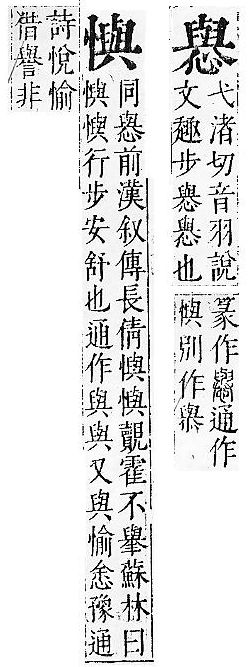 㦛
弋渚切音羽說
文趣步㦛㦛也
篆作通作
懙別作㦛
懙
同㦛前漢敘傳長倩懙懙覿霍不舉蘇林曰
懙懙行步安舒也通作與與又與愉悆豫通
詩悅愉
借譽非